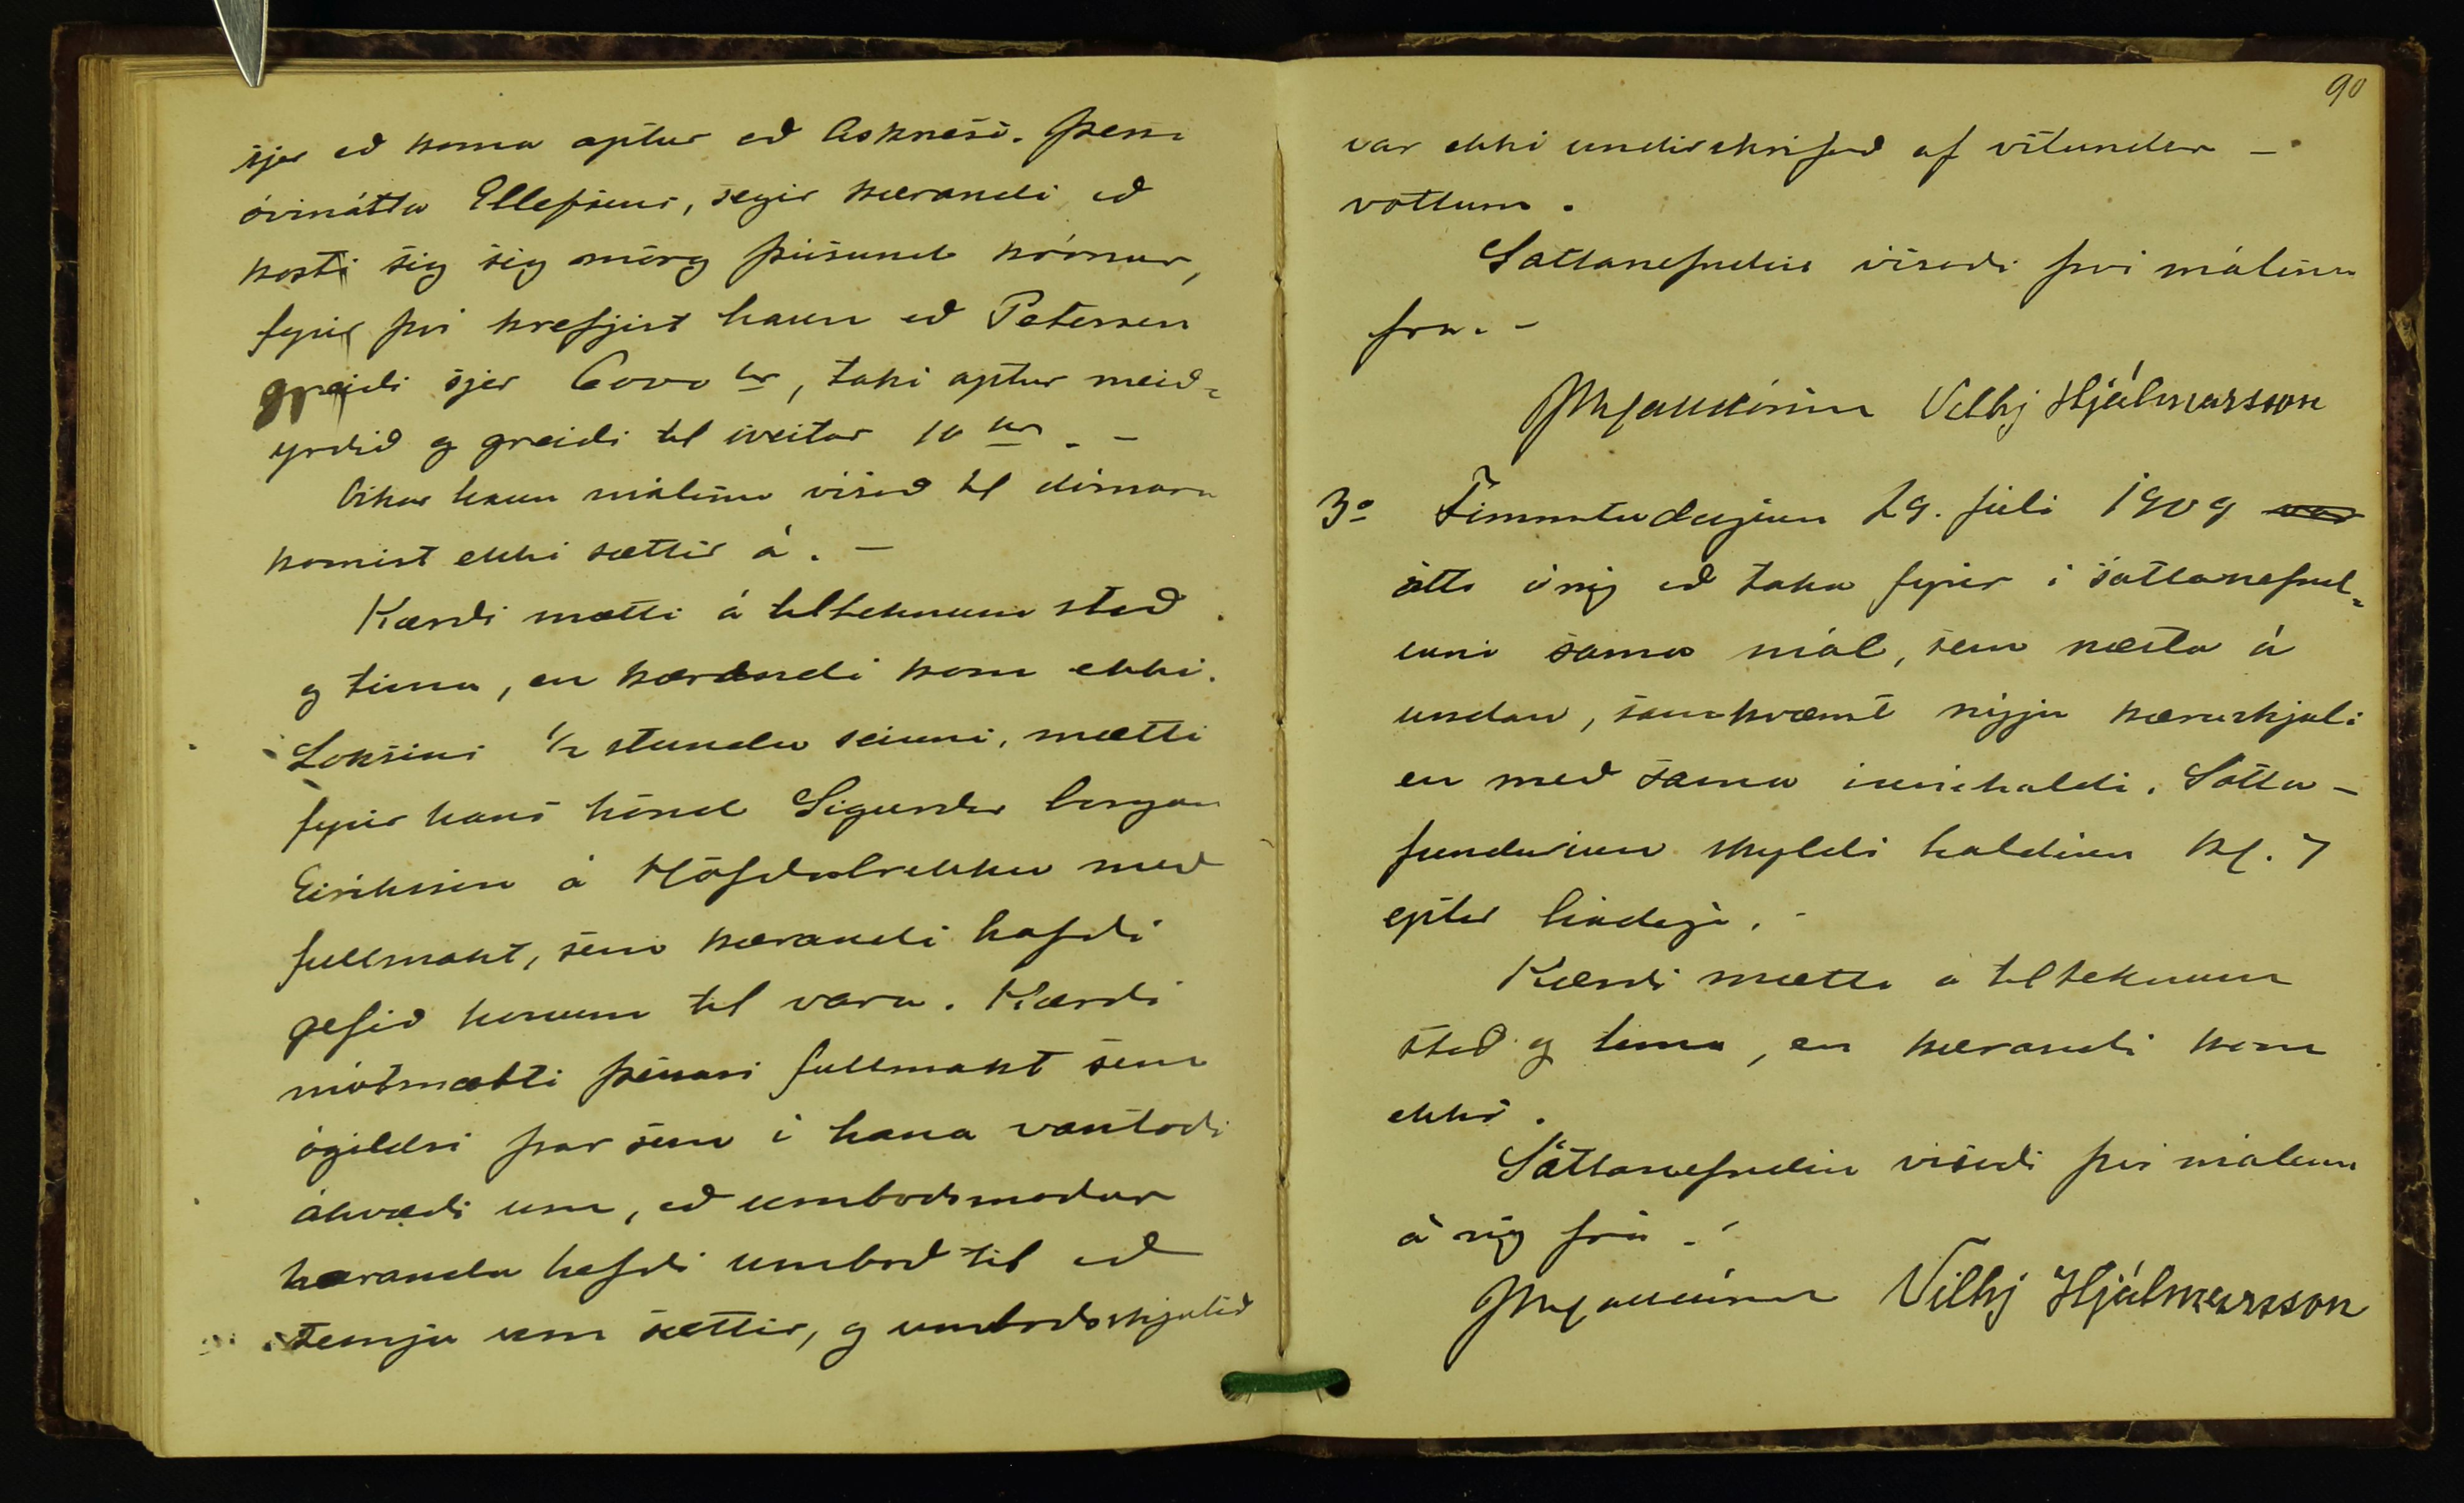 sjer að koma aptur að Asknesi. Þessi
óvinátta Ellefsens, segir kærandi að
kosti sig sig mörg þúsund krónur,
fyrir því krefjist hann að Petersen
greiði sjer 6000 kr, taki aptur meið=
yrðið og greiði til sveitar 10 kr. -
Óskar hann málinu vísað til dómara
komist ekki sættir á. -
Kærði mætti á tilteknum stað
og tíma, en kærandi kom ekki.
Loksins 1/2 stundu seinni, mætti
fyrir hans hönd Sigurður
Eiríksson á Höfðabrekku með
fullmakt, sem kærandi hafði
gefið honum til vara. Kærði
mótmælti þessari fullmakt sem
ógildri þar sem í hana vantaði
ákvæði um, að umboðsmaður
kæranda hefði umboð til að
semja um sættir, og umboðsskjalið
90
var ekki undirskrifað af vitundar -
vottum.
Sáttanefndin vísaði því málinu
frá. -
Vilhj Hjálmarsson
3o Fimmtudaginn 29. júlí 1909 var
átti á ný að taka fyrir í sáttanefnd=
inni sama mál, sem næsta á
undan, samkvæmt nýju kæruskjali
en með sama innihaldi. Sátta -
fundurinn skyldi haldinn kl. 7
eptir hádegi. -
Kærði mætti á tilteknum
stað og tíma, en kærandi kom
ekki.
Sáttanefndin vísaði því málinu
á ný frá. -
Vilhj Hjálmarsson